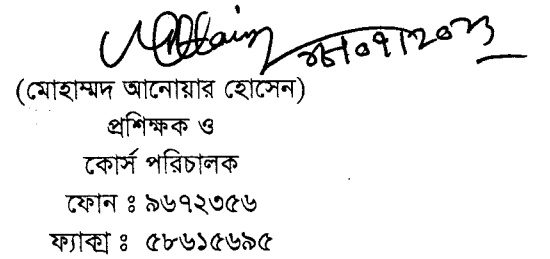 (মোহাম্মদ আনোয়ার হোসেন)
প্রশিক্ষক ও
কোর্স পরিচালক
ফোন ঃ ৯৬৭২৩৫৬
ফ্যাক্স ঃ ৫৮৬১৫৬৯৫